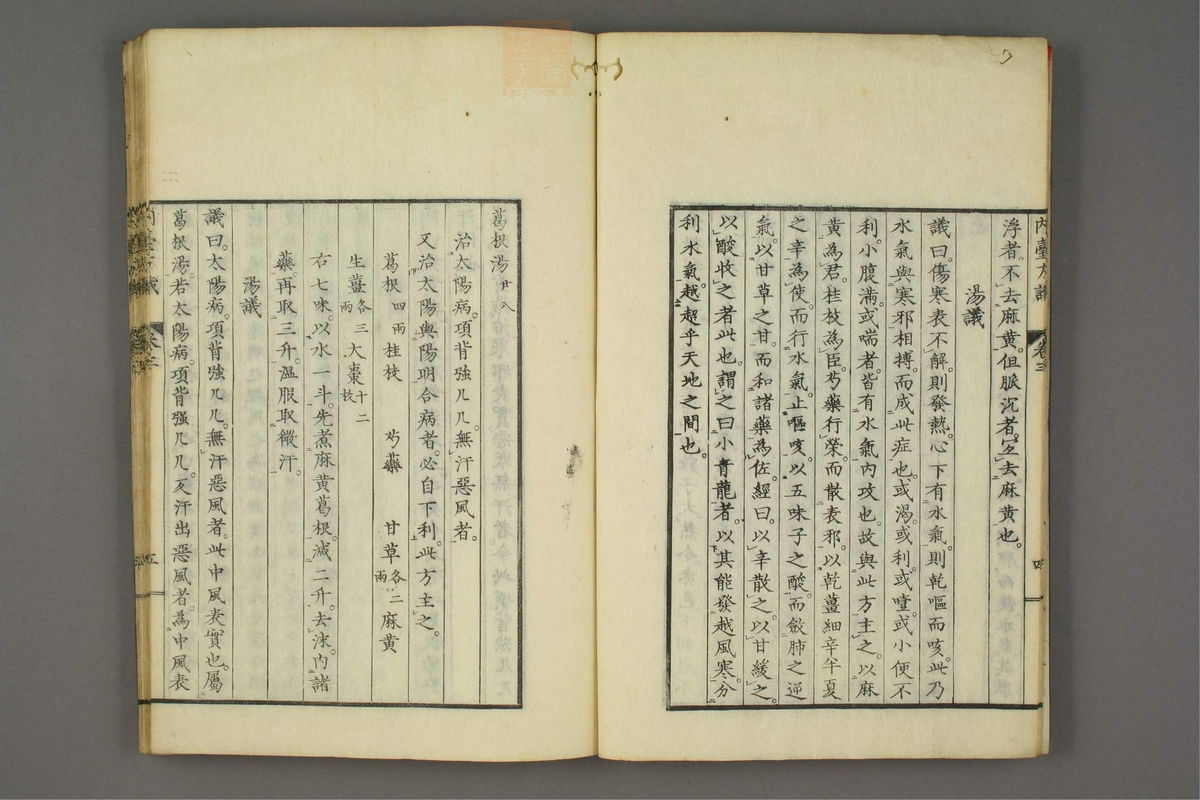 浮者。不去麻黄。但脈沉者。宜去麻黄也。
湯議
議曰。傷寒表不解。則發熱。心下有水氣。則乾嘔而咳。此乃
水氣與寒邪相搏。而成此症也。或渴。或利。或噎。或小便不
利。小腹滿。或喘者。皆有水氣內攻也。故與此方主之。以麻
黄為君。桂枝為臣。芍藥行榮。而散表邪。以乾薑細辛半夏
之辛為使。而行水氣。止嘔咳。以五味子之酸。而斂肺之逆
氣。以甘草之甘。而和諸藥為佐。經曰。以辛散之。以甘緩之。
以酸收之者此也。謂之曰小青龍者。以其能發越風寒。分
利水氣。越超乎天地之間也。
內臺方議
卷三
四
葛根湯 廿八
治太陽病。項背強几几。無汗惡風者。
又治太陽與陽明合病者。必自下利。此方主之。
葛根 四兩 桂枝 芍藥 甘草 各二兩 麻黄
生薑 各三兩 大棗 十二枚
右七味。以水一斗。先煮麻黄葛根。減二升。去沫。內諸
藥。再取三升。溫服取微汗。
湯議
議曰。太陽病。項背強几几。無汗惡風者。此中風表實也。屬
葛根湯。若太陽病。項背强几几。反汗出惡風者。為中風表
卷三
五